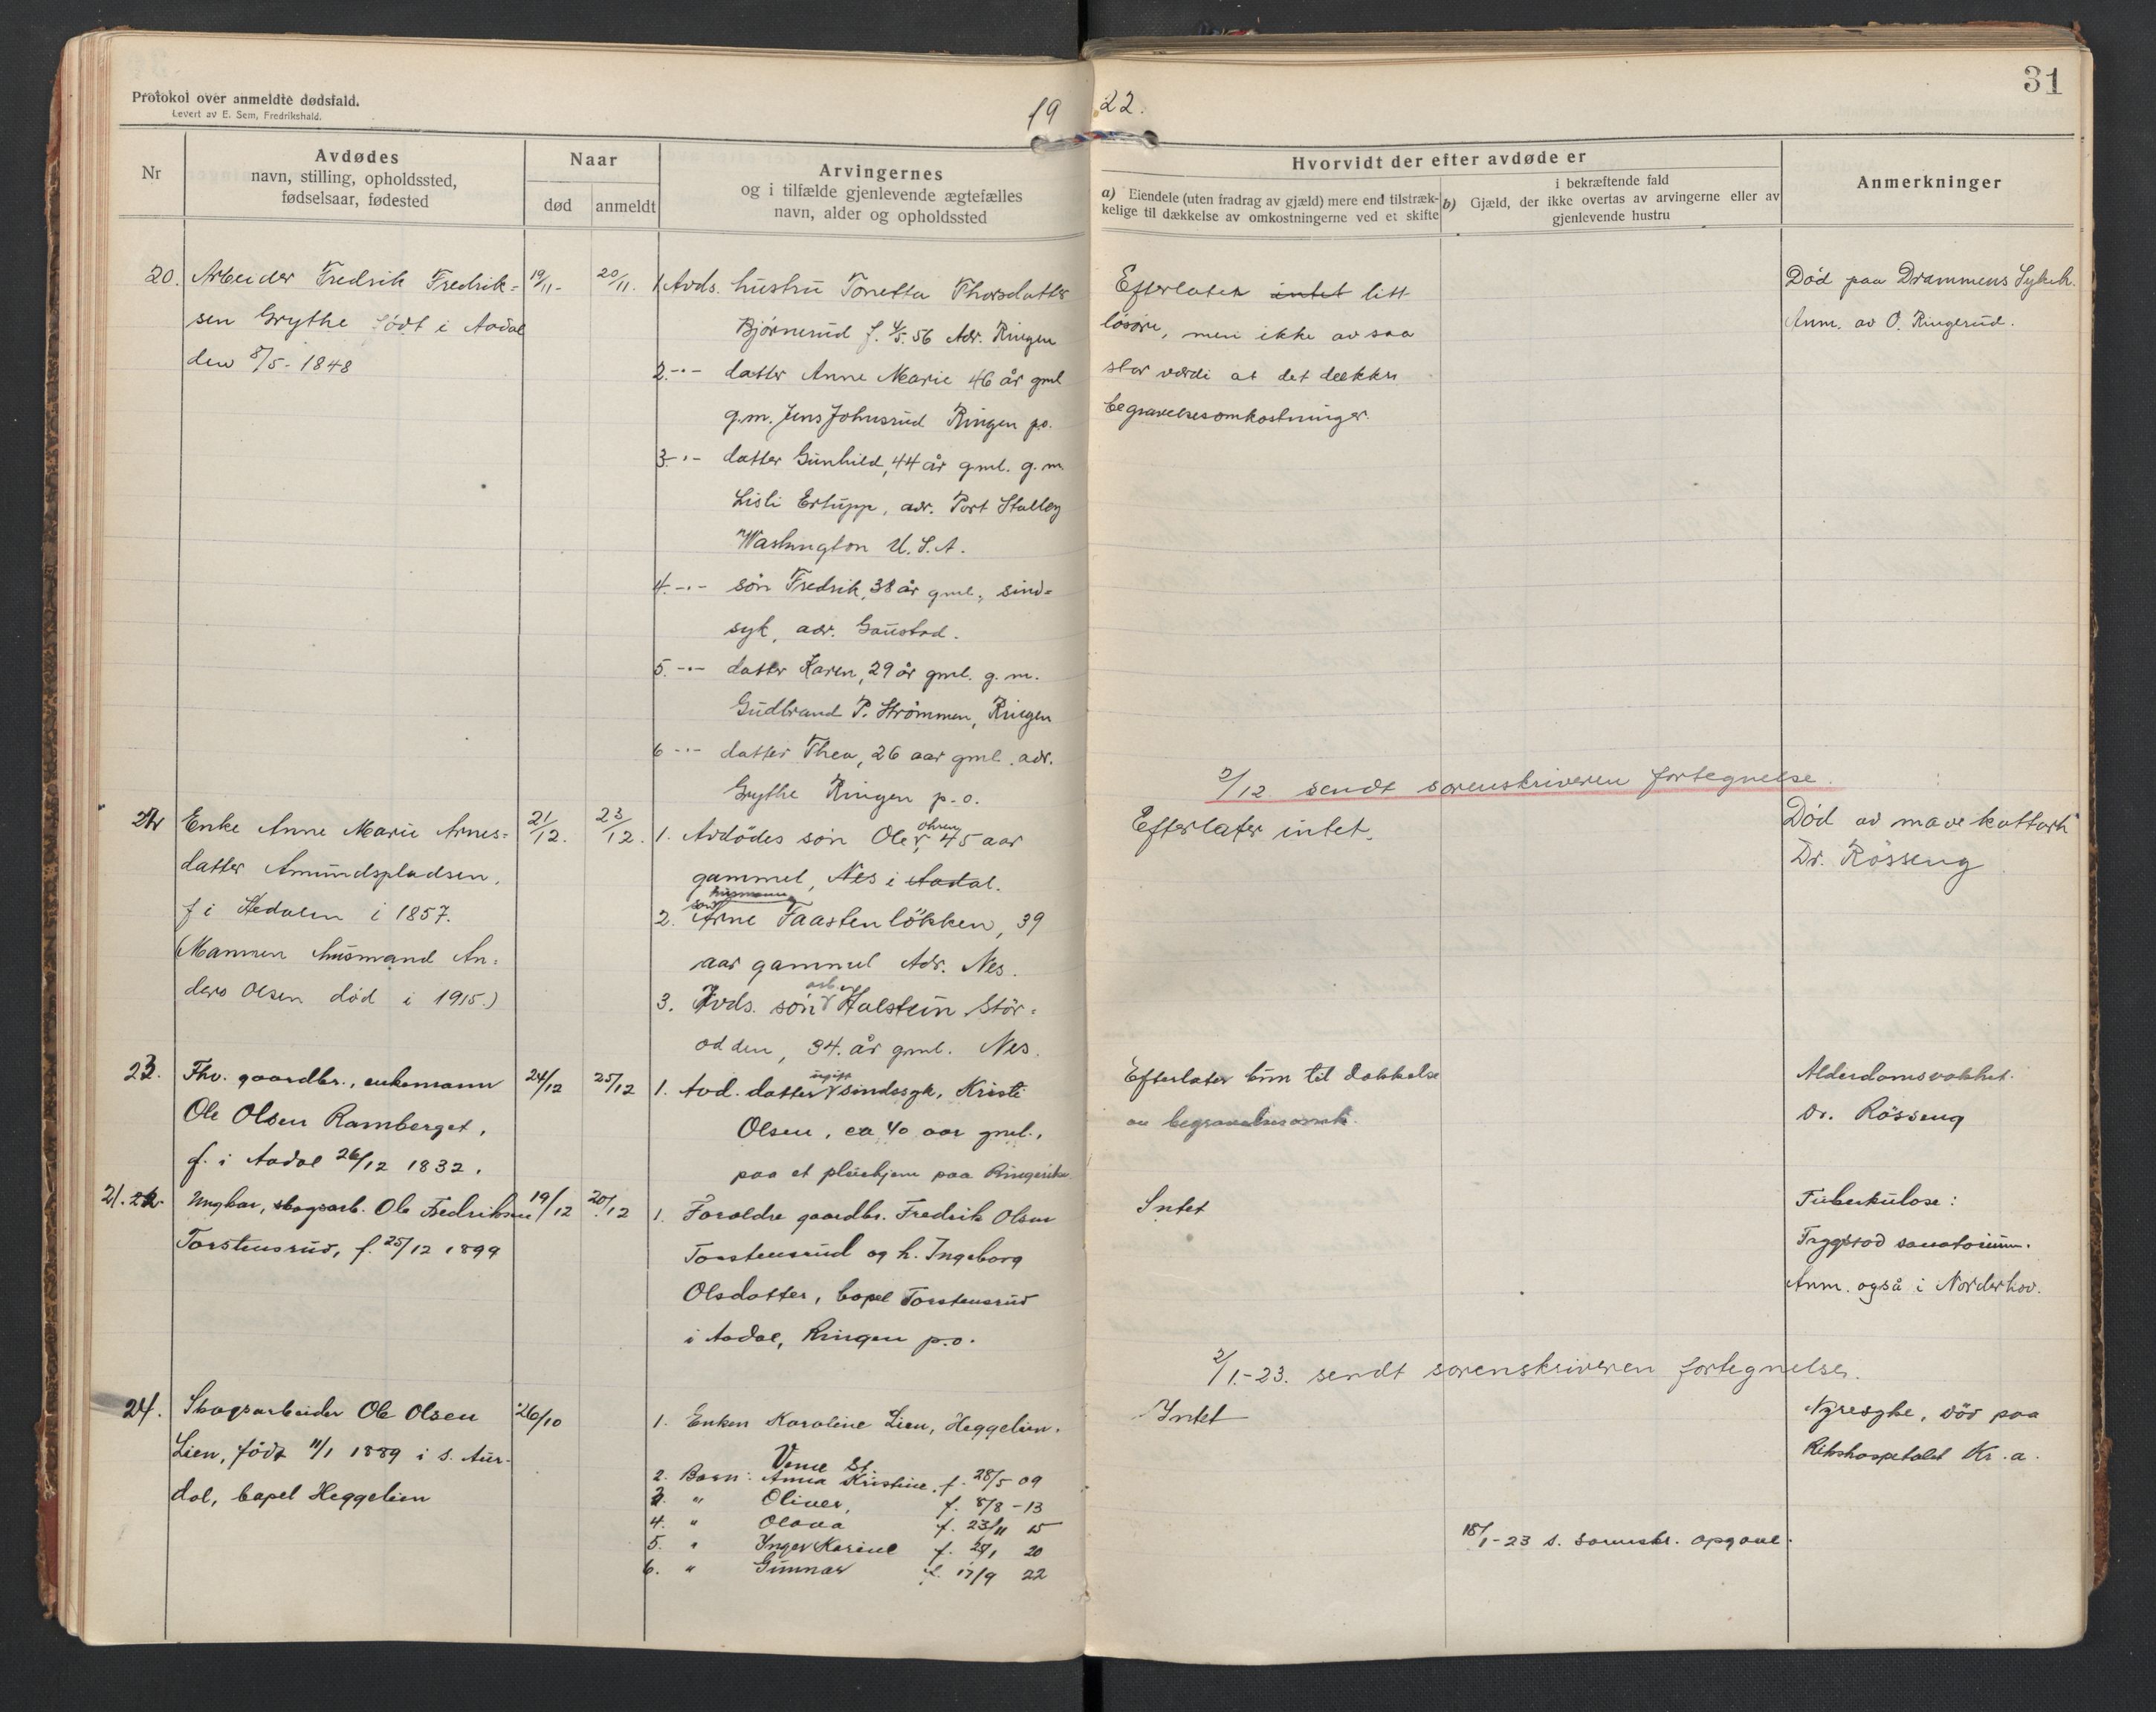 Protokol over anmeldte dødsfald.
Levert av E. Sem, Fredrikshald.
1922.
31
Nr
Avdødes
navn, stilling, opholdssted,
fødselsaar, fødested
Naar
død
anmeldt
Arvingernes
og i tilfælde gjenlevende ægtefælles
navn, alder og opholdssted
Hvorvidt der efter avdøde er
a) Eiendele (uten fradrag av gjæld) mere end tilstræk-
kelige til dækkelse av omkostningerne ved et skifte
i bekræftende fald
b) Gjæld, der ikke overtas av arvingerne eller av
gjenlevende hustru
Anmerkninger
20.
Arbeider Fredrik Fredrik=
sen Grythe født i Aadal
den 8/5-1848
19/11-
20/11.
1. Avds. hustru Tonetta Thorsdatter
Bjørnerud f. 4/5.56 Adr. Ringen
2. -"- datter Anne Marie 46 år gml
g.m. Jens Johnsrud Ringen p.o.
3. -"- datter Gunhild, 44 år gml. g. m.
Lisli Ertupp, adr. Port Stalley
Washington U.S.A.
4. -"- søn Fredrik, 38 år gml., sind=
syk, adr. Gaustad.
5. -"- datter Karen, 29 år gml. g. m.
Gudbrand P. Strømmen, Ringen
6 -"- datter Thea, 26 aar gml. adr.
Grythe Ringen p.o.
Efterlater intet litt
løsøre, men ikke av saa
stor værdi at det dekker
begravelsesomkostninger.
Død paa Drammens Sykeh.
Anm. av O. Ringerud.
2/12. sendt sorenskriveren fortegnelse.
22
Enke Anne Marie Arnes=
datter Amundspladsen,
f i Hedalen i 1857.
(Mannen husmand An=
ders Olsen død i 1915.)
21/12.
23/12.
1. Avdødes søn Ole, 45 aar
gammel, Nes i Aadal.
husmann
søn
2. Arne Faastenløkken, 39
aar gammel Adr. Nes.
arb.
3. Avds. søn Halstein Stor=
odden, 34. år gml. Nes.
Efterlater intet.
Død av mavekattarh
Dr. Røsseng
23.
Fhv. gaardbr., enkemann
Ole Olsen Ramberget,
f. i Aadal 26/12 1832.
24/12
25/12
ugift
1. Avd. datter sindssyk, Kristi
Olsen, ca 40 aar gml.,
paa et pleiehjem paa Ringerike
Efterlater kun til dækkelse
av begravelsesomk.
Alderdomsvakhet.
Dr. Røsseng
21.
Ungkar, skogsarb. Ole Fredriksen
Torstensrud, f. 25/12 1899
19/12
20/12
1. Foreldre gaardbr. Fredrik Olsen
Torstensrud og h. Ingeborg
Olsdatter, bopel Torstensrud
i Aadal, Ringen p.o.
Intet
Tuberkulose:
Tryggstad sanatorium.
Anm. også i Norderhov.
2/1.-23. sendt sorenskriveren fortegnelse.
24.
Skogsarbeider Ole Olsen
Lien, født 11/1 1889 i s. Aur-
dal, bopel Heggelien
26/10
1. Enken Karoline Lien, Heggelien.
Veme St.
2. Barn: Anna Kristine, f. 28/5 09
3. " Oliver, f. 8/8-13
4. " Olava f. 23/11 15
5. " Inger Karine f. 29/1 20
6. " Gunnar f. 17/9 22
Intet
Nyresyke, død paa
Rikshospetalet Kr.a.
18/1-23 s. sorenskr. opgave.